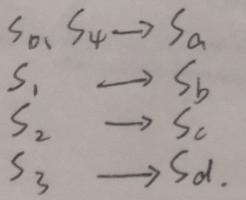 S0, S4 → Sa
S1 → Sb
S2 → Sc
S3 → Sd.